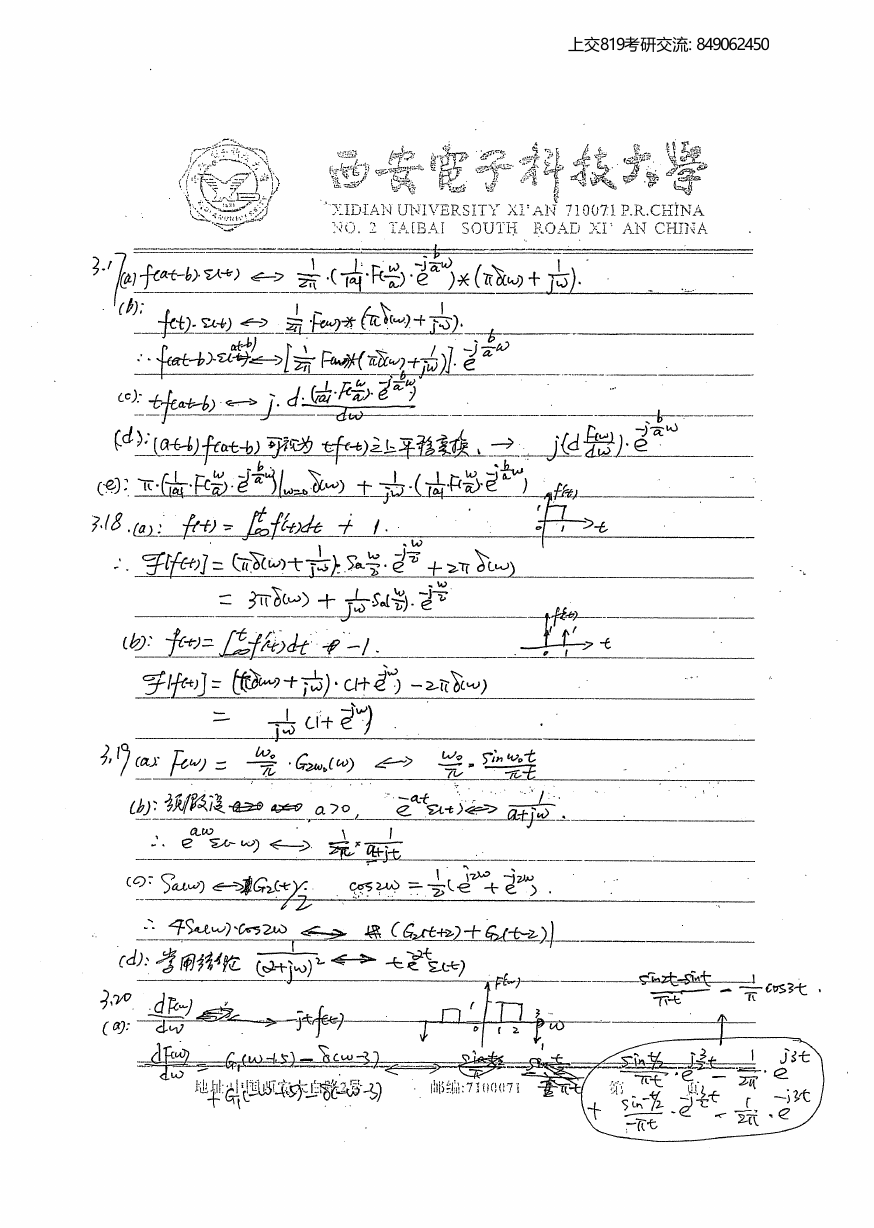 上交819考研交流: 849062450
西安电子科技大学
XIDIAN UNIVERSITY XI'AN 710071 P.R.CHINA
NO. 2 TAIBAI SOUTH ROAD XI' AN CHINA
3.17 (a) f(at-b)·ε(t) ↔ 1/2π·(1/|a|·F(ω/a)·e^{-j(b/a)ω})*(πδ(ω)+1/jω).
(b): f(t)·ε(t) ↔ 1/2π F(ω)*(πδ(ω)+1/jω).
∴ f(at-b)·ε(at-b) ↔ [1/2π F(ω)*(πδ(ω)+1/jω)]·e^{-j(b/a)ω}
(c): tf(at-b) ↔ j·d·(1/|a|·F(ω/a)·e^{-j(b/a)ω})/dω
(d): (at-b)f(at-b) 可视为 tf(t)之上平移变换, → j(d F(ω)/dω)·e^{-j(b/a)ω}
(e): π·(1/|a|·F(ω/a)·e^{-j(b/a)ω})|ω=0 δ(ω) + 1/jω·(1/|a|·F(ω/a)·e^{-j(b/a)ω})
3.18. (a): f(t) = ∫_{-∞}^{t} f'(t)dt + 1. f'(t) 1 0 1 t
∴ F[f(t)] = (πδ(ω)+1/jω)·Sa(ω/2)·e^{-jω/2} + 2πδ(ω)
= 3πδ(ω) + 1/jω·Sa(ω/2)·e^{-jω/2}
(b): f(t) = ∫_{-∞}^{t} f'(t)dt -1. f'(t) 0 1 t
F[f(t)] = (πδ(ω)+1/jω)·(1+e^{-jω}) - 2πδ(ω)
= 1/jω (1+e^{-jω})
3.19 (a): F(ω) = ω₀/π·G2ω₀(ω) ↔ ω₀/π · sinω₀t/πt
(b): 预假设 a>0, e^{-at}ε(t) ↔ 1/(a+jω).
∴ e^{aω}ε(-ω) ↔ 1/2π × 1/(a+jt)
(c): Sa(ω) ↔ G2(t)/2 cos2ω = 1/2(e^{j2ω}+e^{-j2ω}).
∴ 4Sa(ω)·cos2ω ↔ (G2(t+2)+G2(t-2))
(d): 常用结论 1/(2+jω)² ↔ te^{-2t}ε(t)
3.20 (a): dF(ω)/dω ↔ -jtf(t) F(ω) 1 0 1 2 3 ω sin2t-sint/πt - 1/π cos3t.
dF(ω)/dω = G1(ω+1.5) - δ(ω-3) ↔ sin t/2/πt·e^{j(3/2)t} - 1/2π·e^{j3t}
+ G1(ω-1.5) - δ(ω-3) + sin t/2/-πt·e^{-j(3/2)t} - 1/2π·e^{-j3t}
地址:中国西安太白路2号 邮编:710071 第 页